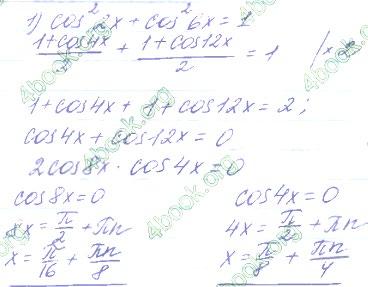 1) cos²2x + cos²6x = 1
(1+cos4x)/2 + (1+cos12x)/2 = 1 |×2
1+cos4x + 1+cos12x = 2;
cos4x + cos12x = 0
2cos8x · cos4x = 0
cos8x = 0
8x = π/2 + πn
x = π/16 + πn/8
cos4x = 0
4x = π/2 + πn
x = π/8 + πn/4
4book.org
4book.org
4book.org
4book.org